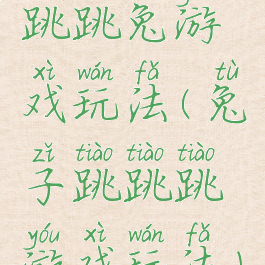 跳跳兔游
xì wán fǎ tù
戏玩法（兔
zǐ tiào tiào tiào
子跳跳跳
yóu xì wán fǎ
游戏玩法）